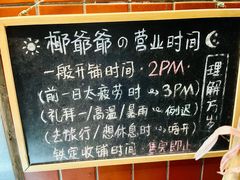 椰爷爷の营业时间
一般开铺时间·2PM
(前一日太疲劳时→3PM)
(礼拜一/高温/暴雨→倒迟)
(去旅行/想休息时→唔开)
铁定收铺时间·售完即止
理解万岁